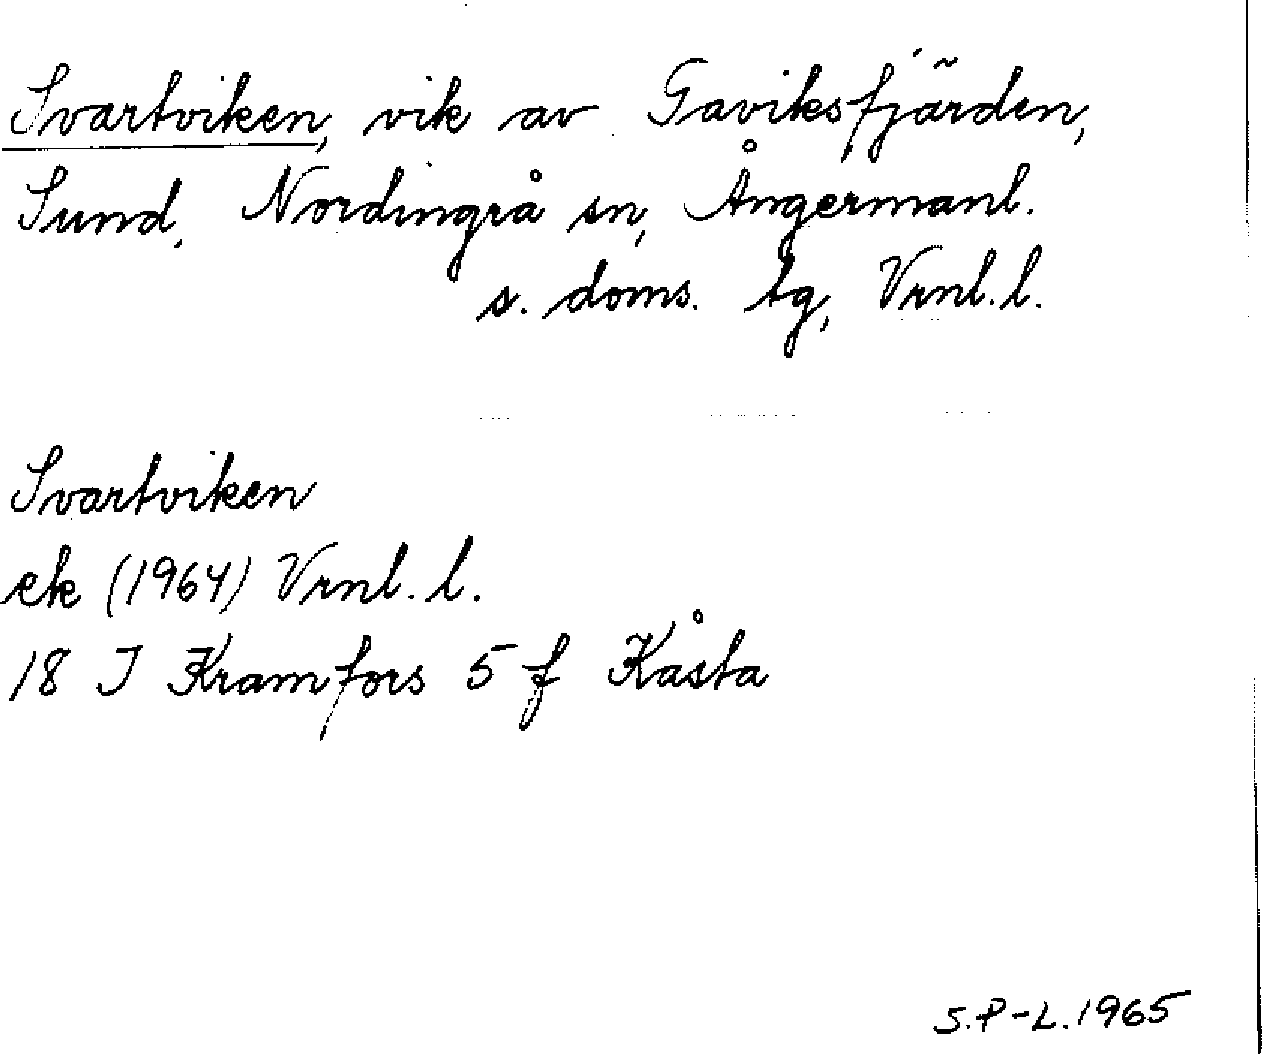 Svartviken, vik av Gaviksfjärden,
Sund, Nordingrå sn, Ångermanl.
s. doms. tg, Vrnl. l.
Svartviken
ek (1964) Vrnl. l.
18 J Kramfors 5 f Kåsta
S.P-L. 1965